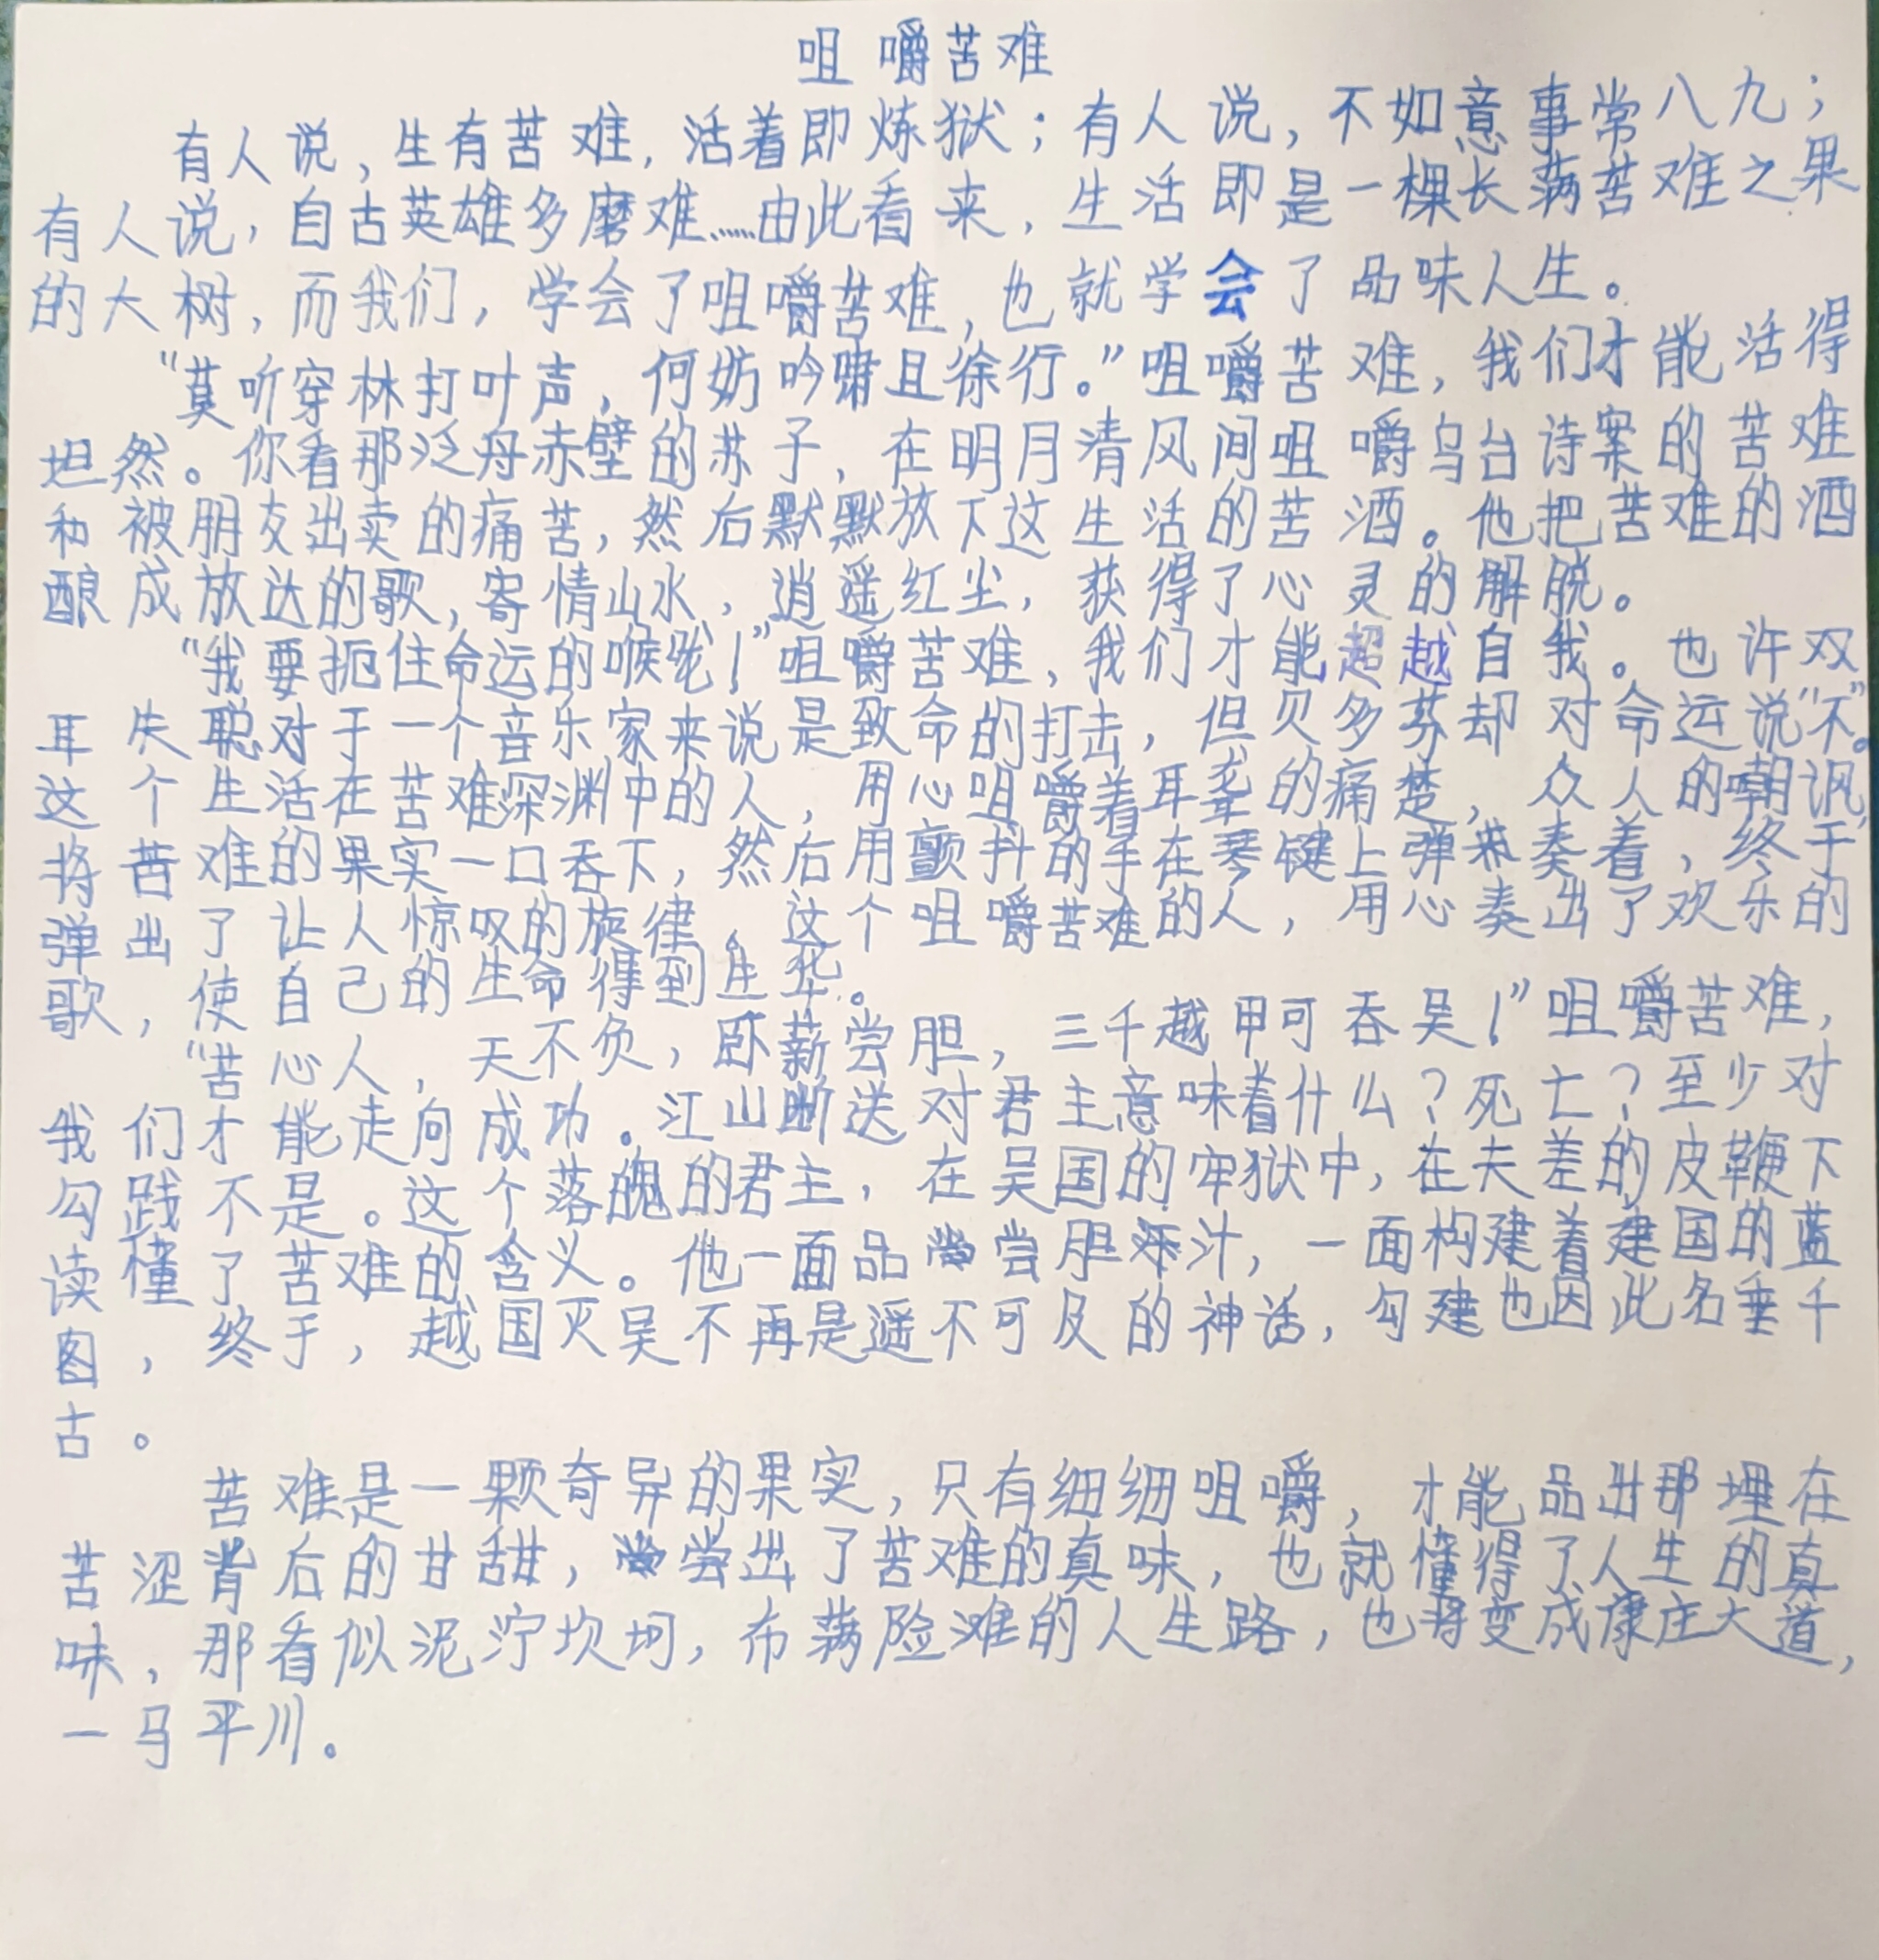 咀嚼苦难
有人说,生有苦难,活着即炼狱;有人说,不如意事常八九;
有人说,自古英雄多磨难……由此看来,生活即是一棵长满苦难之果
的大树,而我们,学会了咀嚼苦难,也就学会了品味人生。
“莫听穿林打叶声,何妨吟啸且徐行。”咀嚼苦难,我们才能活得
坦然。你看那泛舟赤壁的苏子,在明月清风间咀嚼乌台诗案的苦难
和被朋友出卖的痛苦,然后默默放下这生活的苦酒。他把苦难的酒
酿成放达的歌,寄情山水,逍遥红尘,获得了心灵的解脱。
“我要扼住命运的喉咙!”咀嚼苦难,我们才能超越自我。也许双
耳失聪对于一个音乐家来说是致命的打击,但贝多芬却对命运说“不”。
这个生活在苦难深渊中的人,用心咀嚼着耳聋的痛楚,众人的嘲讽,
将苦难的果实一口吞下,然后用颤抖的手在琴键上弹奏着,终于
弹出了让人惊叹的旋律。这个咀嚼苦难的人,用心奏出了欢乐的
歌,使自己的生命得到升华。
“苦心人,天不负,卧薪尝胆,三千越甲可吞吴!”咀嚼苦难,
我们才能走向成功。江山断送对君主意味着什么?死亡?至少对
勾践不是。这个落魄的君主,在吴国的牢狱中,在夫差的皮鞭下
读懂了苦难的含义。他一面品尝胆汁,一面构建着建国的蓝
图,终于,越国灭吴不再是遥不可及的神话,勾建也因此名垂千
古。
苦难是一颗奇异的果实,只有细细咀嚼,才能品出那埋在
苦涩背后的甘甜,尝出了苦难的真味,也就懂得了人生的真
味,那看似泥泞坎坷,布满险滩的人生路,也将变成康庄大道,
一马平川。